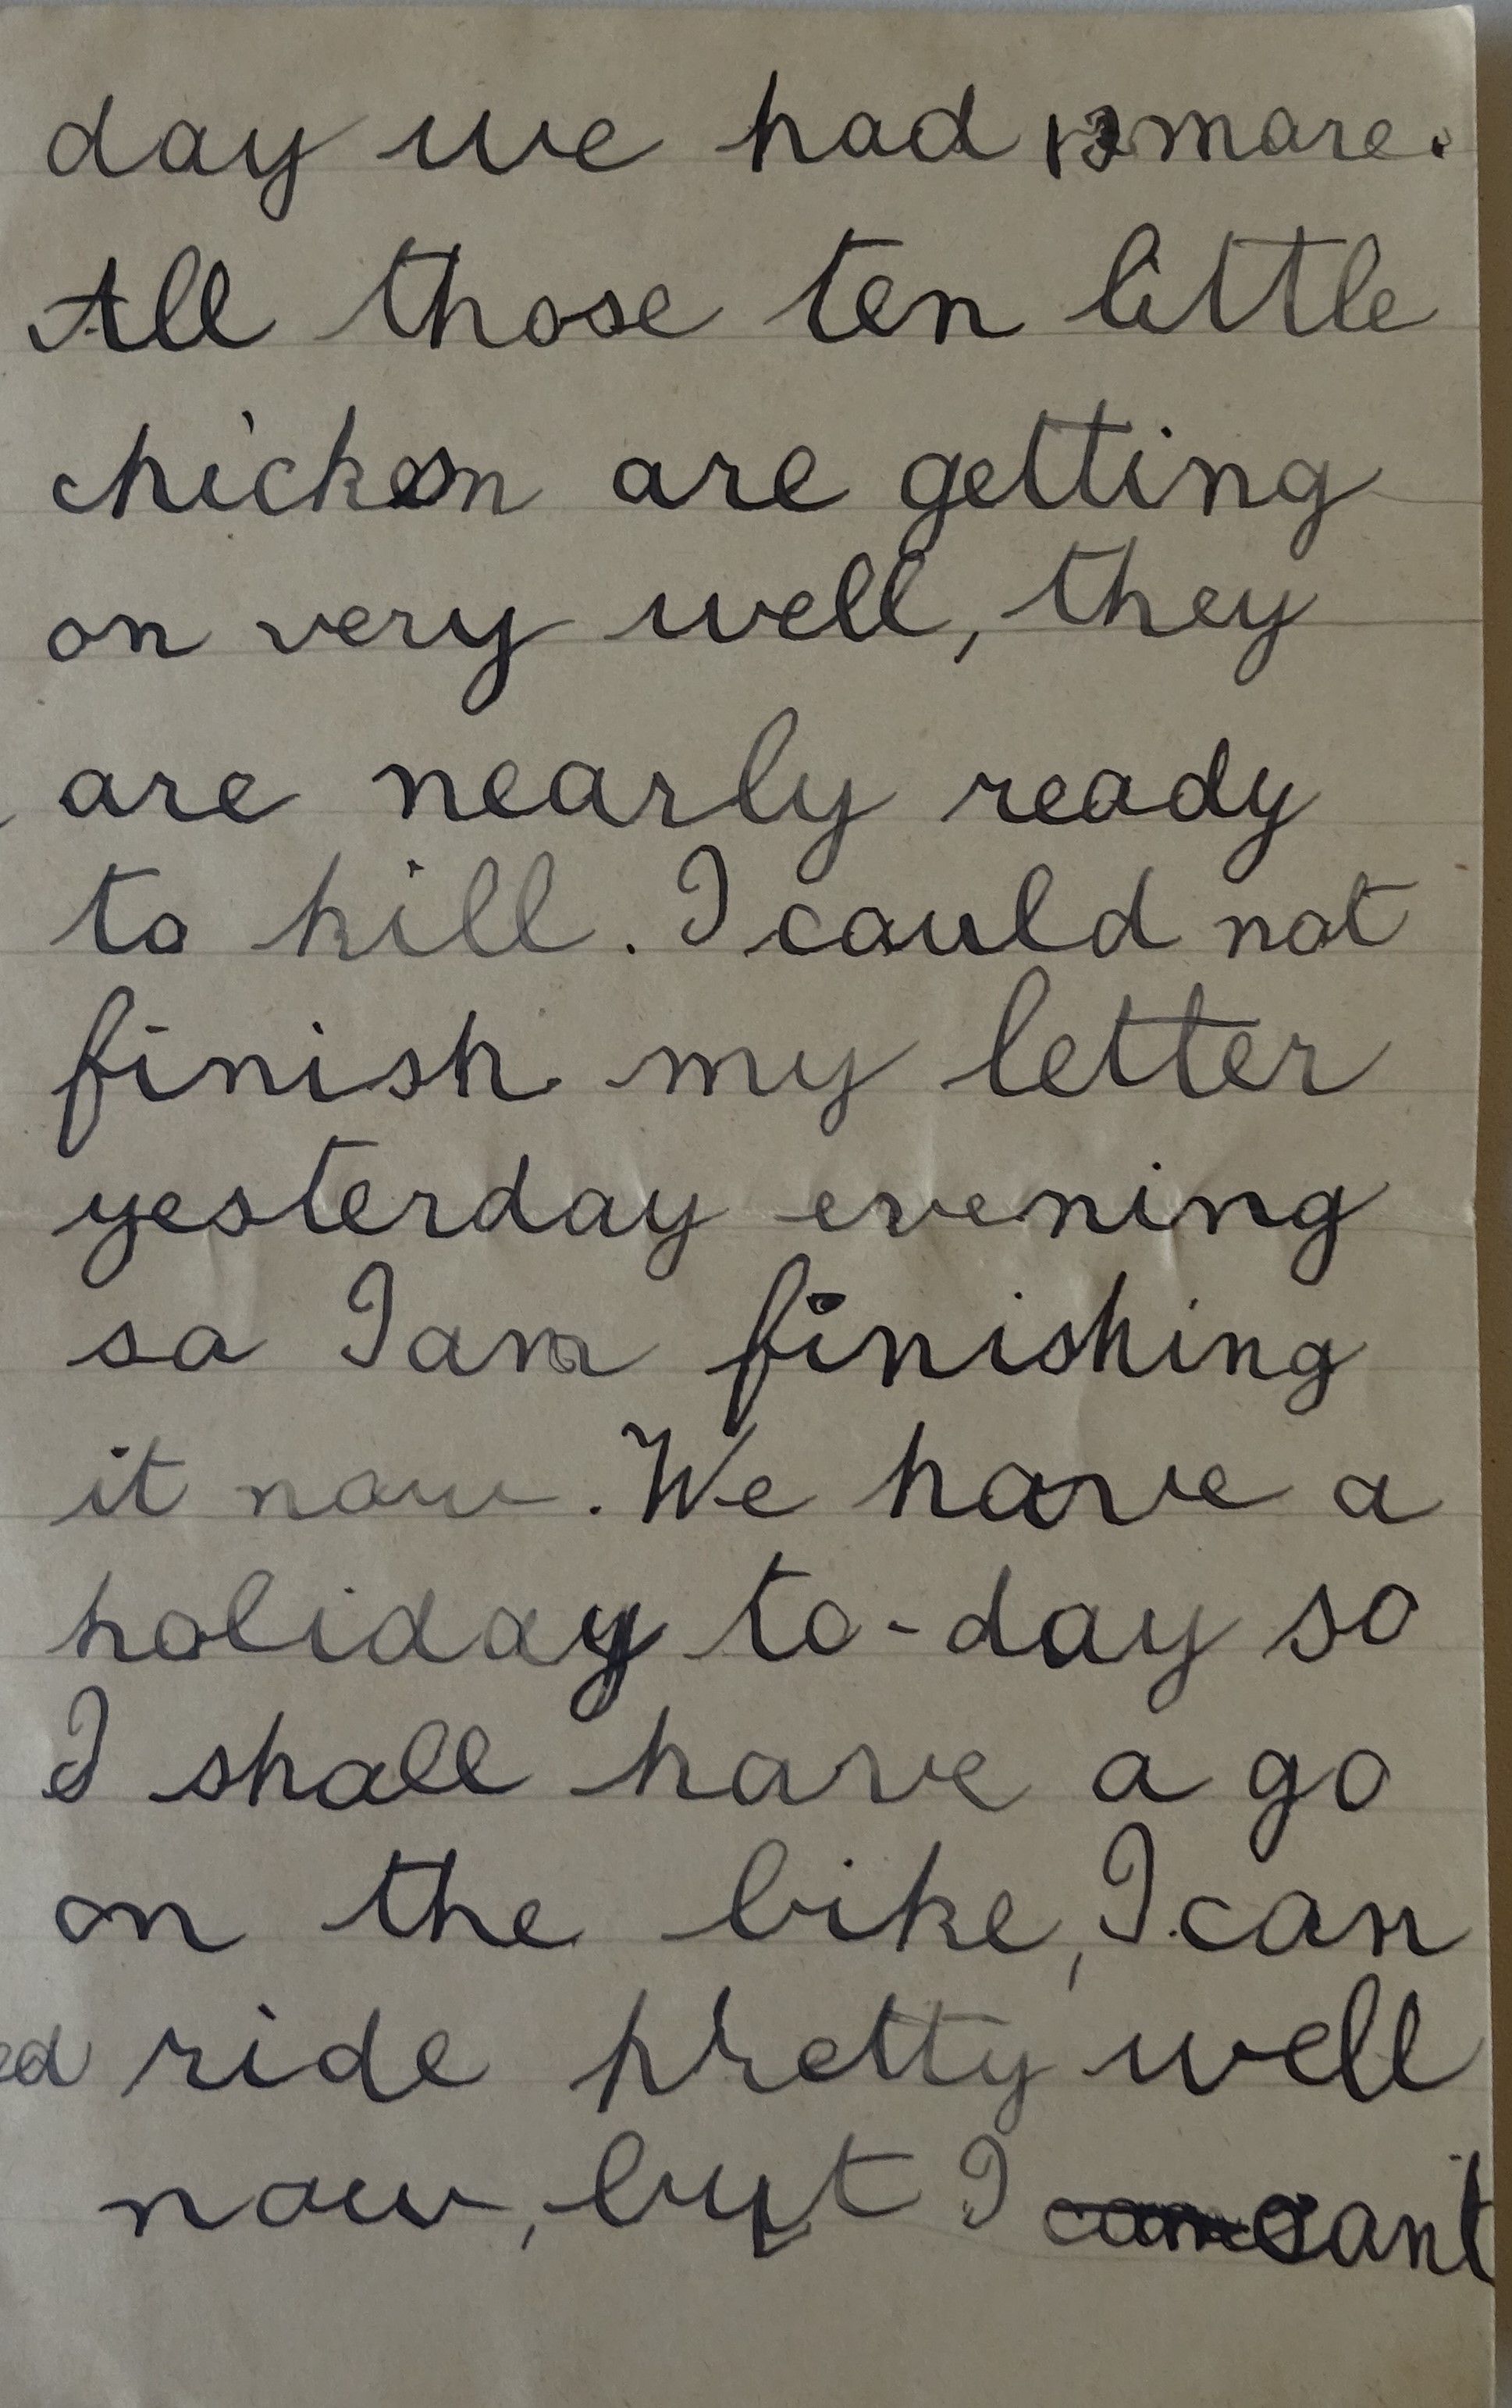 day we had 13 more.
All those ten little
chicken are getting
on very well, they
are nearly ready
to kill. I could not
finish my letter
yesterday evening
so I am finishing
it now. We have a
holiday to-day so
I shall have a go
on the bike, I can
ed ride pretty well
now, but I cant